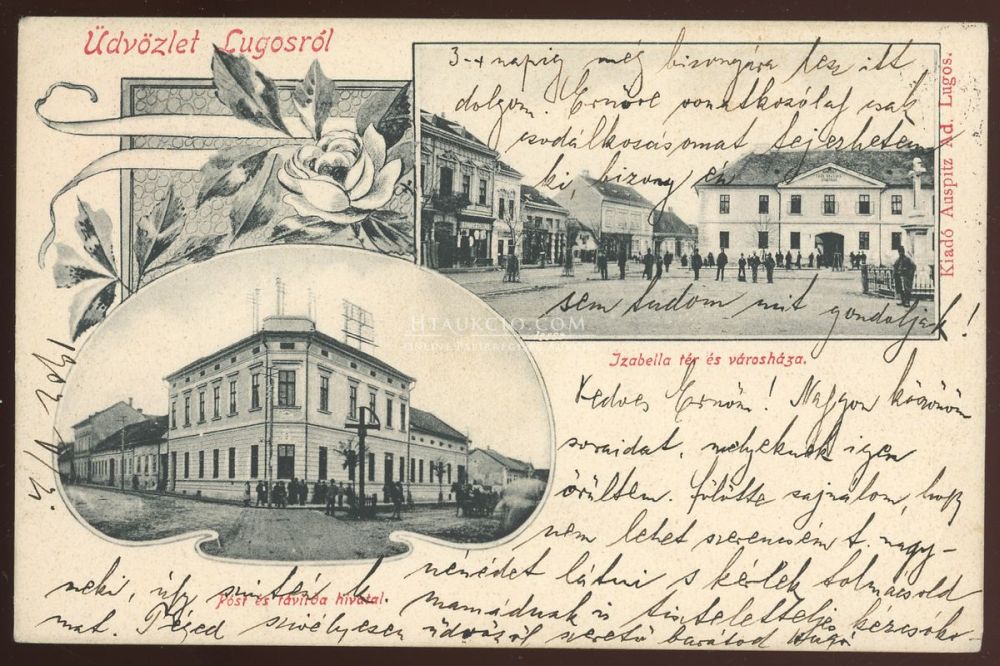 Üdvözlet Lugosról
3-4 napig még bizonyára lesz itt
dolgom. Ernőre vonatkozólag csak
csodálkozásomat fejezhetem
ki, bizony én
sem tudom mit gondoljak!
Kiadó Auspitz Ad. Lugos.
HTAUKCIO.COM
Izabella tér és városháza.
Kedves Ernőm! Nagyon köszönöm
soraidat, melyeknek igen
örültem. Fölötte sajnálom, hogy
nem lehet szerencsém t. nagy-
nénédet látni s kérlek tolmácsold
neki, úgy szintén k. mamádnak is tiszteletteljes kézcsóko-
mat. Téged szivélyesen üdvözöl szerető barátod Hugó
Post és távirda hivatal.